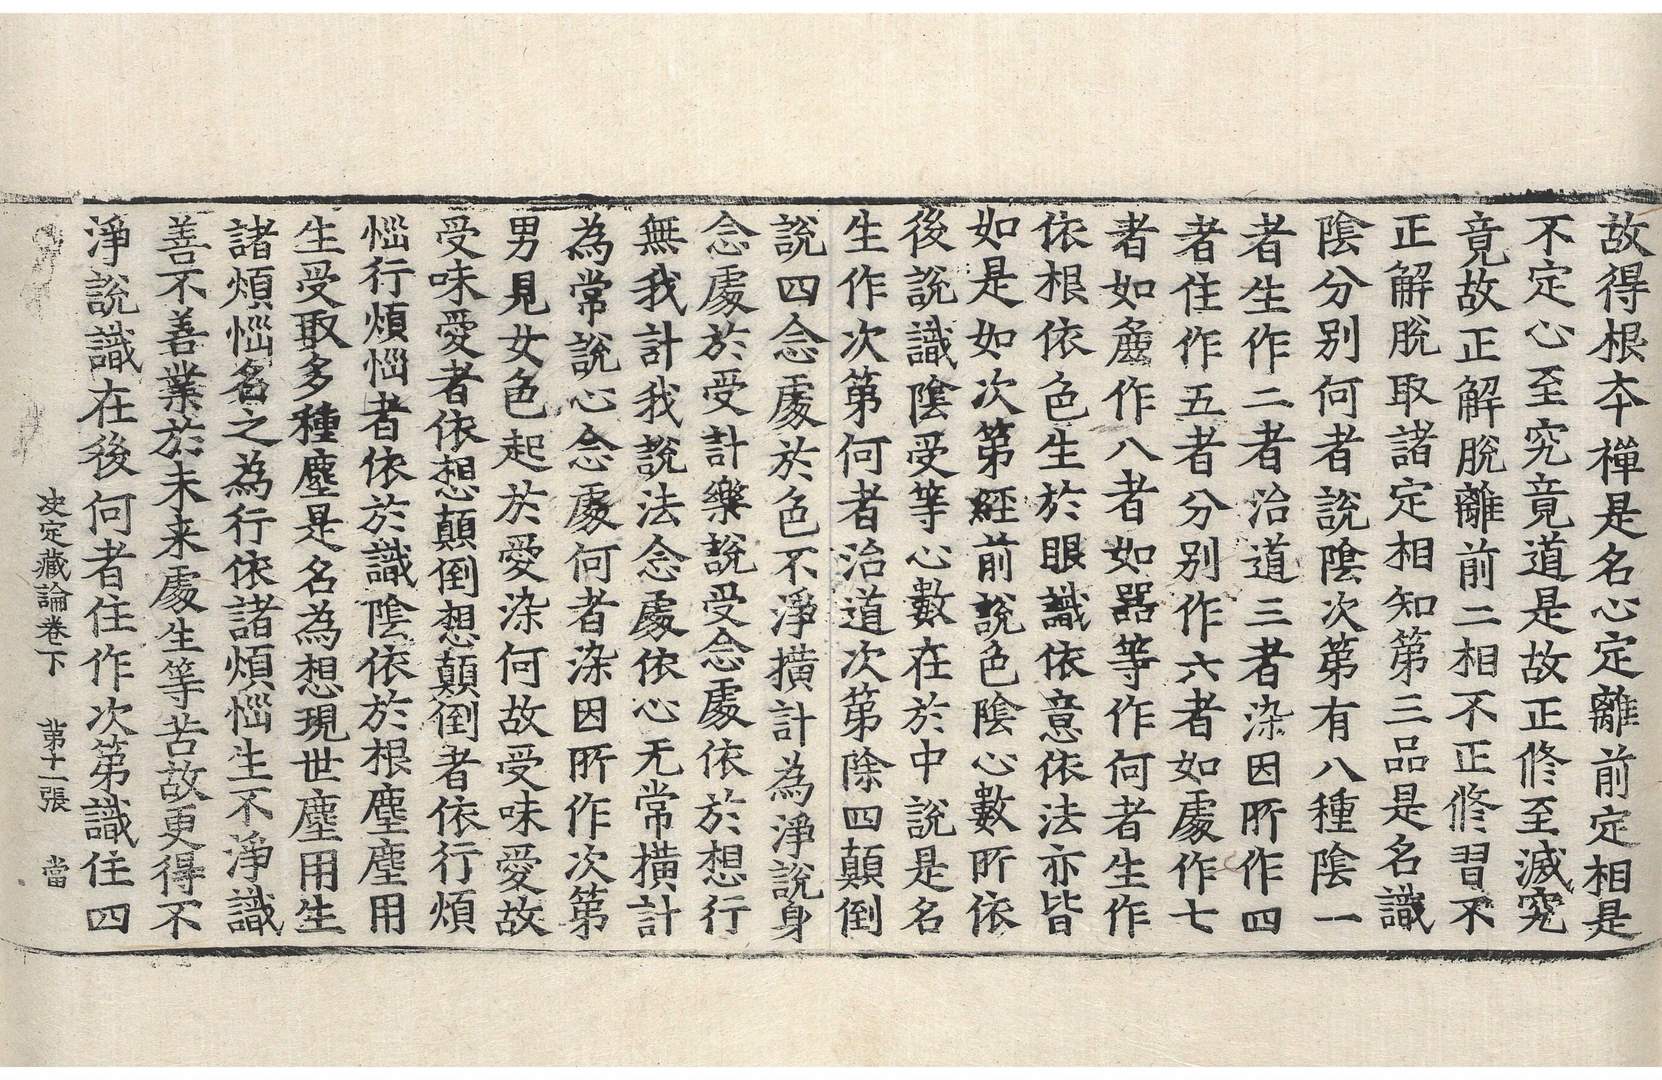 故得根夲禪是名心定離前定相是
不定心至究竟道是故正修至滅究
竟故正解脫離前二相不正修習不
正解脫取諸定相知第三品是名識
陰分别何者說陰次第有八種陰一
者生作二者治道三者染因所作四
者住作五者分别作六者如處作七
者如麁作八者如器等作何者生作
依根依色生於眼識依意依法亦皆
如是如次第經前說色陰心數所依
後說識陰受等心數在於中說是名
生作次第何者治道次第除四顛倒
說四念處於色不淨撗計為淨說身
念處於受計樂說受念處依於想行
無我計我說法念處依心无常撗計
為常說心念處何者染因所作次第
男見女色起於愛染何故受味愛故
受味愛者依想顛倒想顛倒者依行煩
惱行煩惱者依於識陰依於根塵塵用
生受取多種塵是名為想現世塵用生
諸煩惱名之為行依諸煩惱生不淨識
善不善業於未来處生等苦故更得不
淨說識在後何者住作次第識住四
决定藏論卷下 苐十一張 當